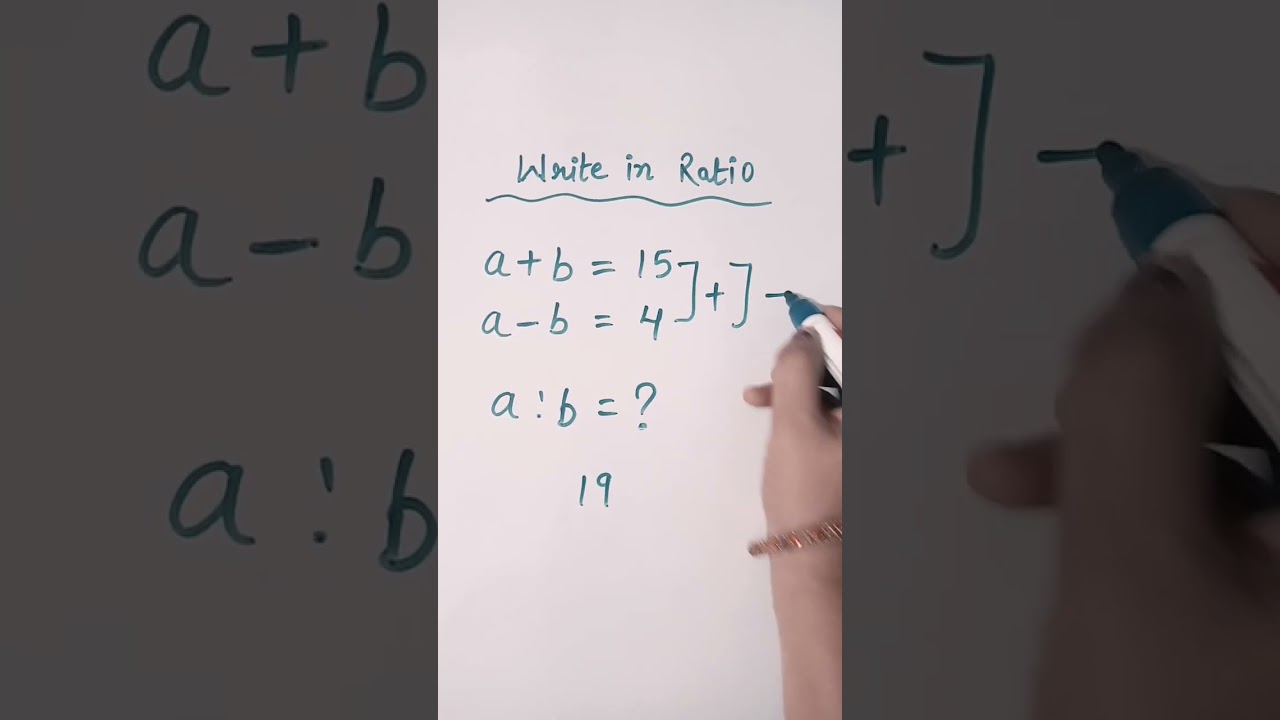 Write in Ratio
a + b = 15 ] + ] -
a - b = 4
a : b = ?
19